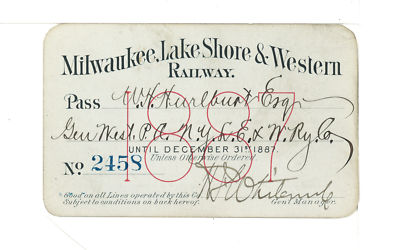 Milwaukee, Lake Shore & Western
RAILWAY.
1887
Pass W. H. Hurlburt Esq
Gen West. P.A. N.Y. L.E. & W. Ry Co.
UNTIL DECEMBER 31ST 1887.
Unless Otherwise Ordered.
No. 2458
Good on all Lines operated by this Co.
Subject to conditions on back hereof.
Gen'l Manager.